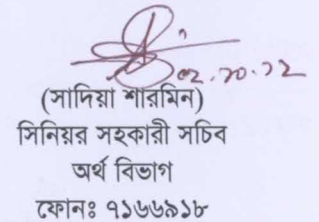 ০২.১০.১২
(সাদিয়া শারমিন)
সিনিয়র সহকারী সচিব
অর্থ বিভাগ
ফোনঃ ৭১৬৬৯১৮